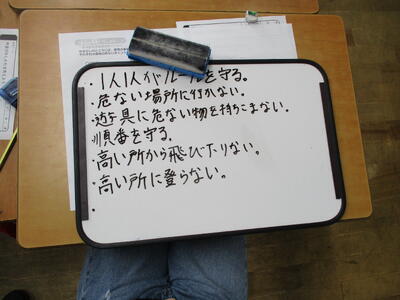 ・1人1人がルールを守る。
・危ない場所に行かない。
・遊具に危ない物を持ちこまない。
・順番を守る。
・高い所から飛び下りない。
・高い所に登らない。
・